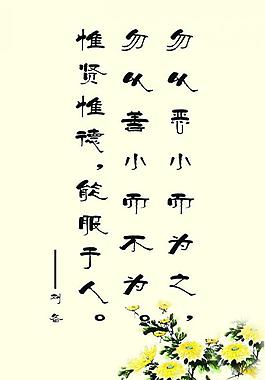 勿以恶小而为之，
勿以善小而不为。
惟贤惟德，能服于人。
——刘备